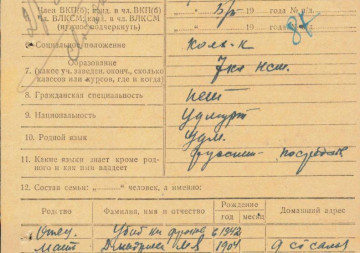 Член ВКП(б); канд. в чл. ВКП(б)
чл. ВЛКСМ; канд. в чл. ВЛКСМ
(нужное подчеркнуть)
б/п 19 года № п/б.
19 года
6. Социальное положение
кол-к
Образование
7. (какое уч. заведен. оконч., сколько
классов или курсов, где и когда)
7 кл нсш.
8. Гражданская специальность
нет
9. Национальность
Удмурт
10. Родной язык
Удм.
11. Какие языки знает кроме род-
ного и как ими владеет
русский - посредств
12. Состав семьи: „——“ человек, а именно:
Родство Фамилия, имя и отчество Рождение Домашний адрес
год месяц
Отец Убит на фронте в 1942
Мать Дмитриева 1904